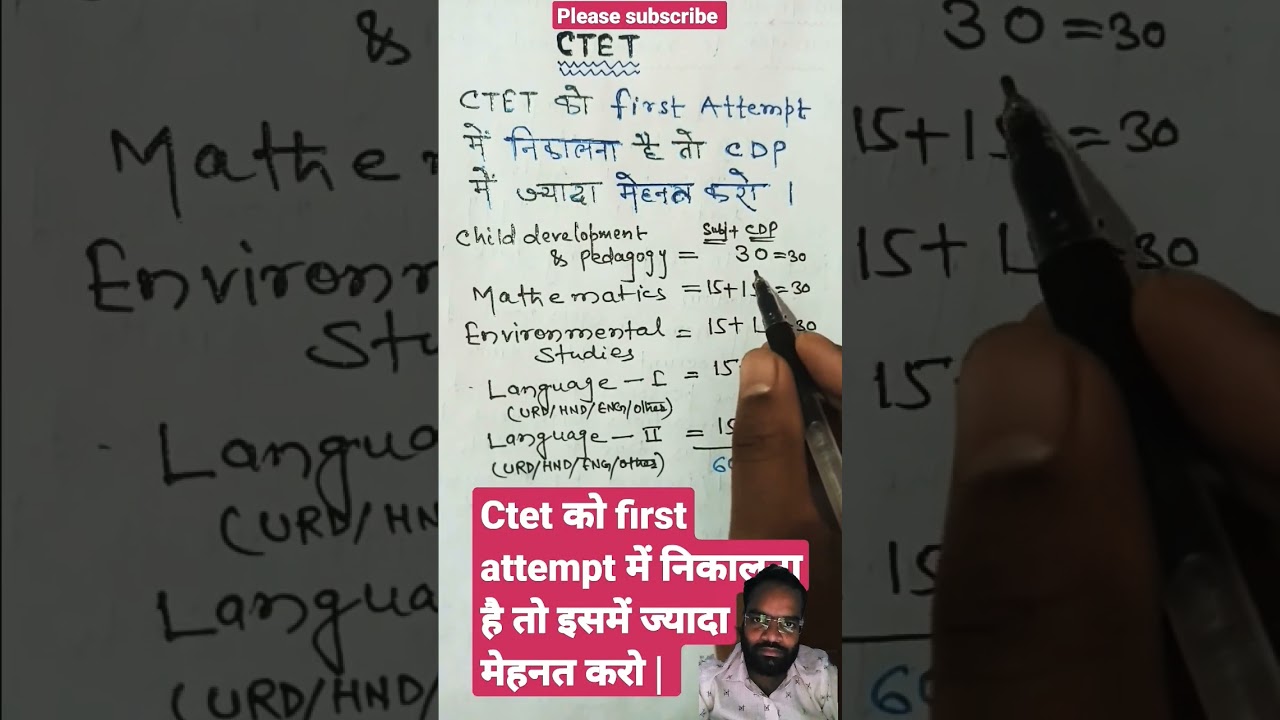 Please subscribe
CTET
CTET को first Attempt
में निकालना है तो CDP
में ज्यादा मेहनत करो |
Subj + CDP
Child development
& pedagogy = 30 = 30
Mathematics = 15+15 = 30
Environmental = 15+ 30
Studies
Language - I = 15
(URD/HND/ENG/Others)
Language - II = 15
(URD/HND/ENG/others)
60
Ctet को first
attempt में निकालना
है तो इसमें ज्यादा
मेहनत करो |
& 30 = 30
Mathe 15+1 = 30
Environ 15+ 30
Stu
Langua 15
(URD/HN
Langua 15
(URD/HN 60